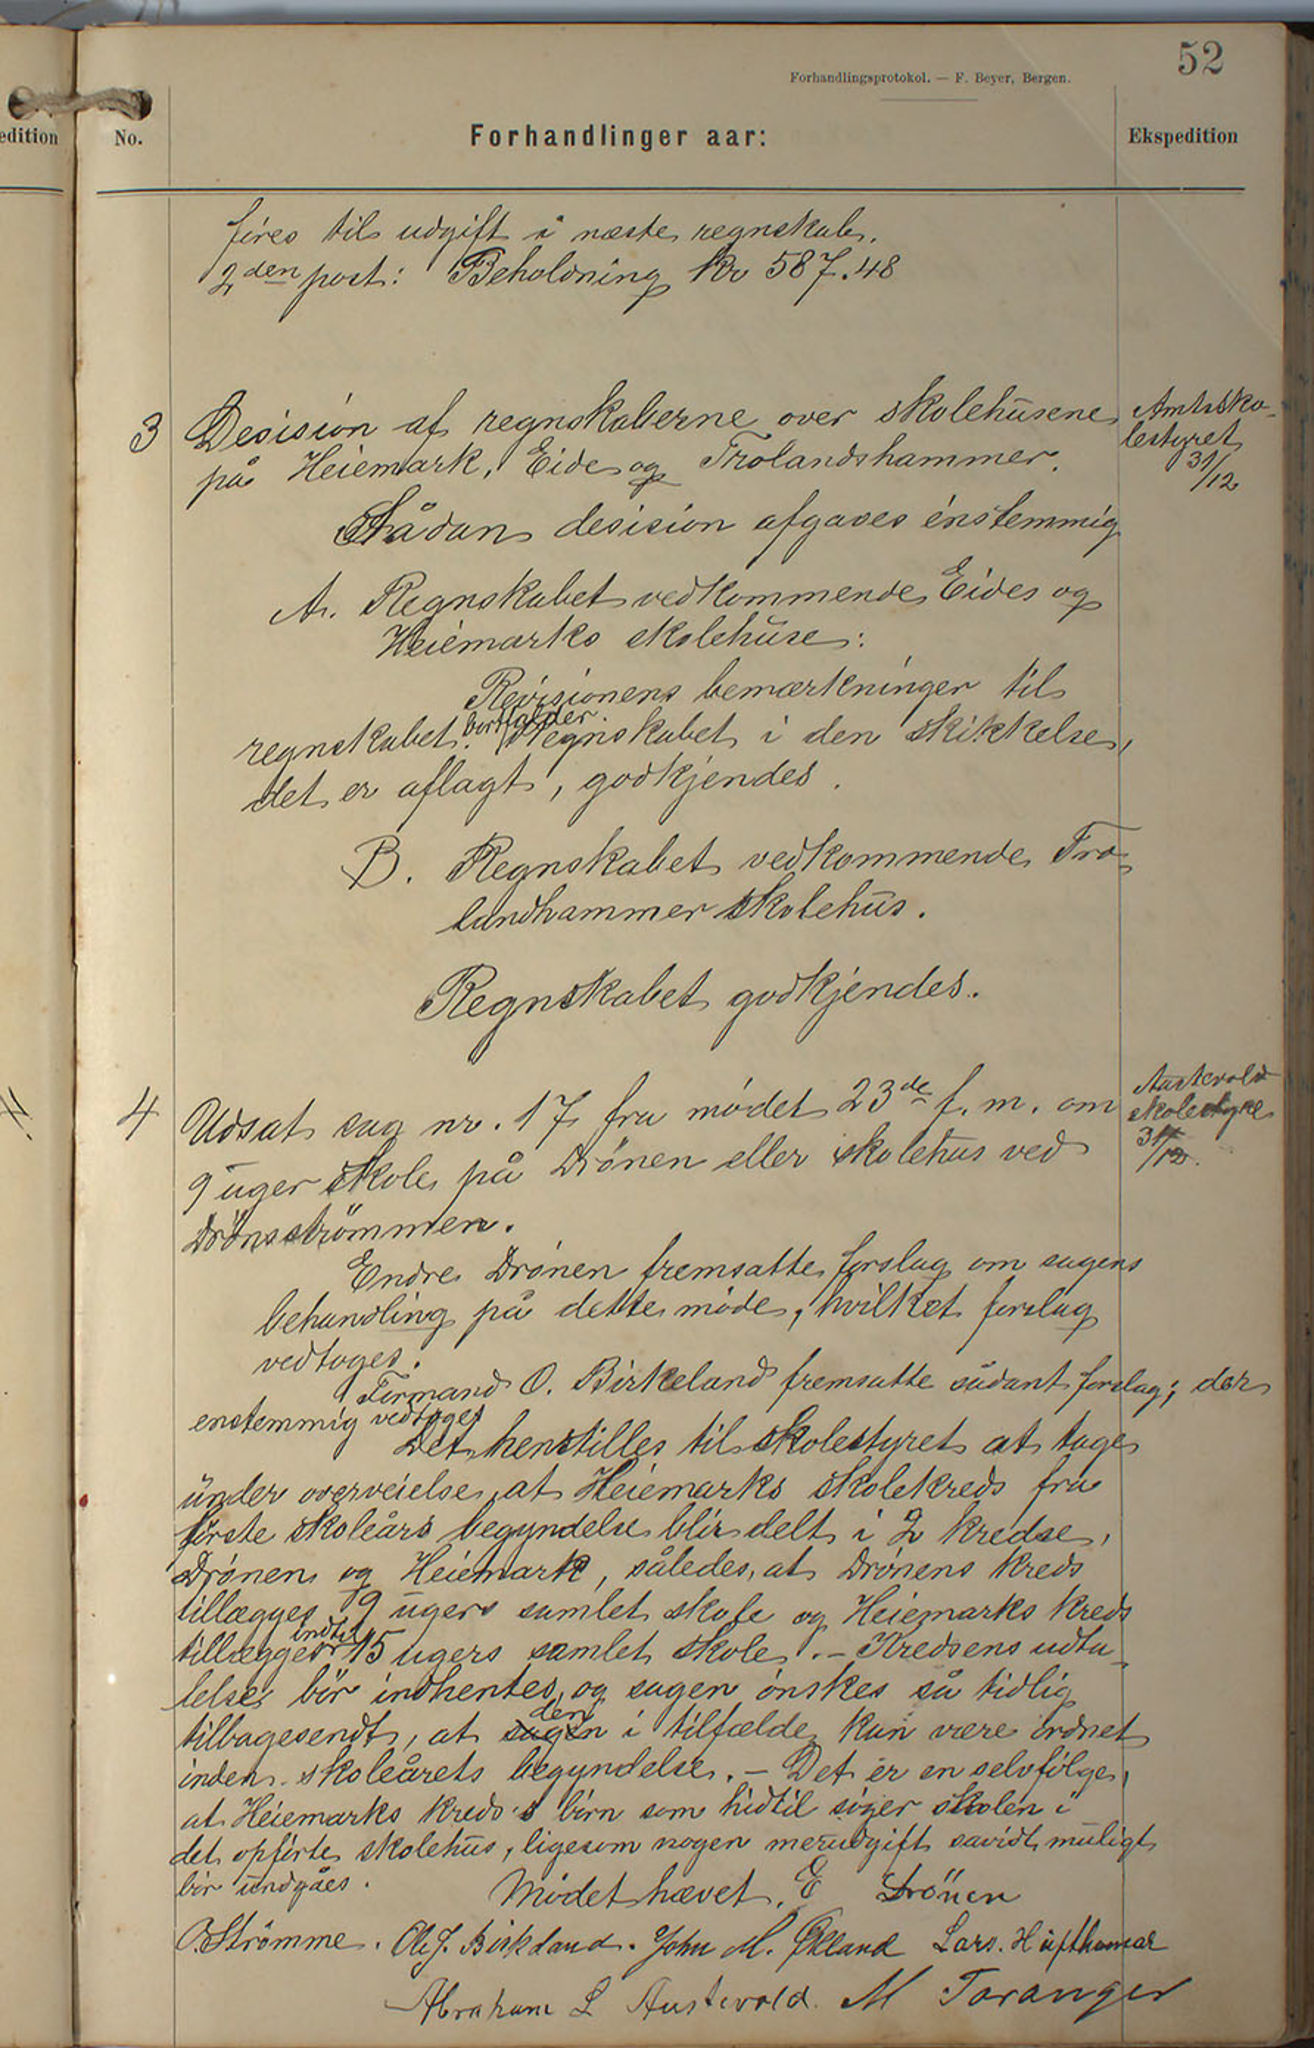 52
Forhandlingsprotokol. — F. Beyer, Bergen.
edition
No.
Forhandlinger aar:
Ekspedition
föres til udgift i næste regnskab.
2den post: Beholdning Kr 587.48
3
Desision af regnskaberne over skolehusene
på Heiemark, Eide og Trolandshammer.
Amtssko-
lestyret
31/12
Sådan desision afgaves énstemmig
A. Regnskabet vedkommende Eides og
Heiemarks skolehuse:
Revisionens bemærkninger til
regnskabet bortfalder. Regnskabet i den skikkelse,
det er aflagt, godkjendes.
B. Regnskabet vedkommende Tro
landhammer skolehus.
Regnskabet godkjendes.
4
Udsat sag nr. 17 fra mødet 23de f. m. om
9 uger skole på Drönen eller skolehus ved
Drönsströmmen.
Austevold
skolestyre
31/12.
Endre Drönen fremsatte forslag om sagens
behandling på dette möde, hvilket forslag
vedtoges.
Formand O. Birkeland fremsatte sådant forslag; der
enstemmig vedtoges
Det henstilles til skolestyret at tage
under overveielse, at Heiemarks skolekreds fra
förste skoleårs begyndelse blir delt i 2 kredse,
Drönen og Heiemark, således, at Drönens kreds
tillægges 9 ugers samlet skole og Heiemarks kreds
tillægges indtil 15 ugers samlet skole. – Kredsens udta-
lelse bör indhentes, og sagen önskes så tidlig
tilbagesendt, at sagen den i tilfælde kan være ordnet
inden skoleårets begyndelse. – Det er en selvfölge,
at Heiemarks kreds's börn som hidtil söger skolen i
det opförte skolehus, ligesom nogen merudgift savidt muligt
bör undgåes.
Mödet hævet. E Drönen
O. Strömme. Ole J. Birkeland. John M. Økland Lars. Hufthamar
Abraham L Austevold. M Toranger